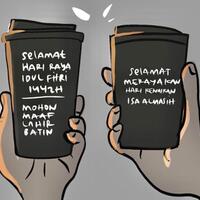 Selamat
HARI RAYA
IDUL FITRI
1442H
MOHON
MAAF
LAHIR
BATIN
SELAMAT
MERAYAKAN
HARI KENAIKAN
ISA ALMASIH